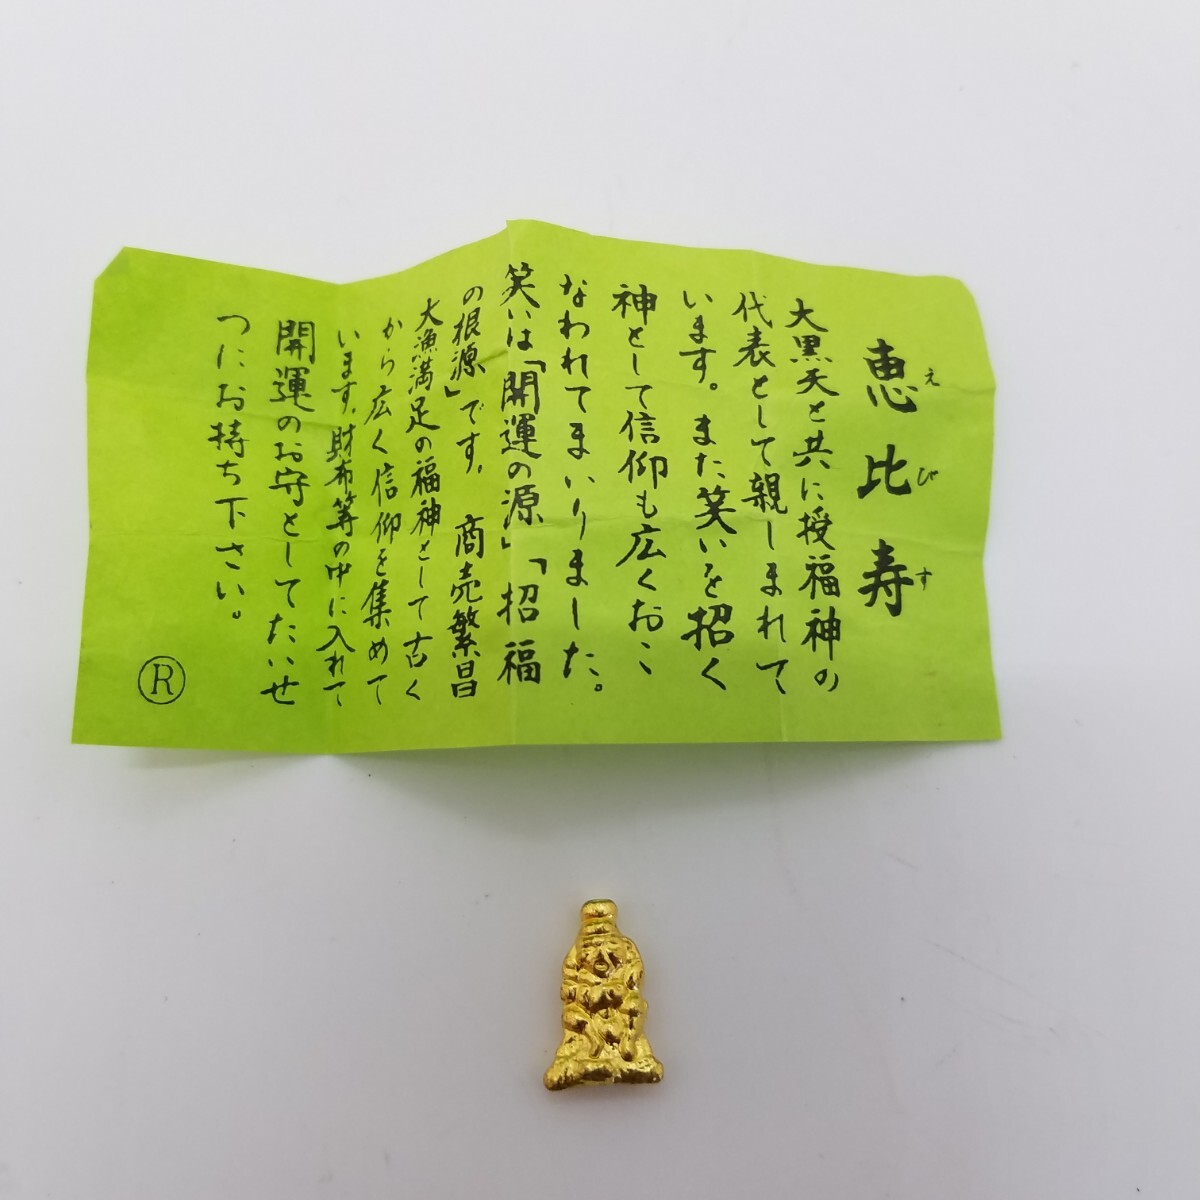 恵比寿
えびす
大黒天と共に授福神の
代表として親しまれて
います。また笑いを招く
神として信仰も広くおこ
なわれてまいりました。
笑いは「開運の源」「招福
の根源」です。商売繁昌
大漁満足の福神として古く
から広く信仰を集めて
います。財布等の中に入れて
開運のお守としてたいせ
つにお持ち下さい。
R